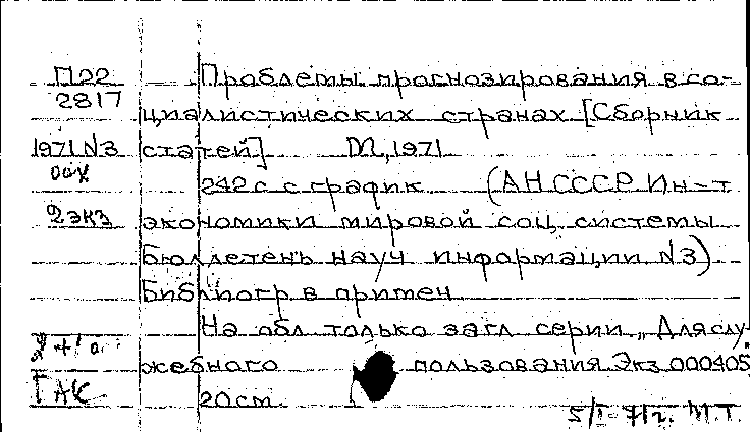 П22
2817
1971 N3
2 экз
ГАК
Проблемы прогнозирования в со-
циалистических странах [Сборник
статей] М, 1971
242 с с график (АН СССР Ин-т
экономики мировой соц. системы
Бюллетень науч информации N3)
Библиогр в примеч
На обл только загл серии „Для слу-
жебного пользования Экз 000405"
20 см
5/I-71г. М.Т.